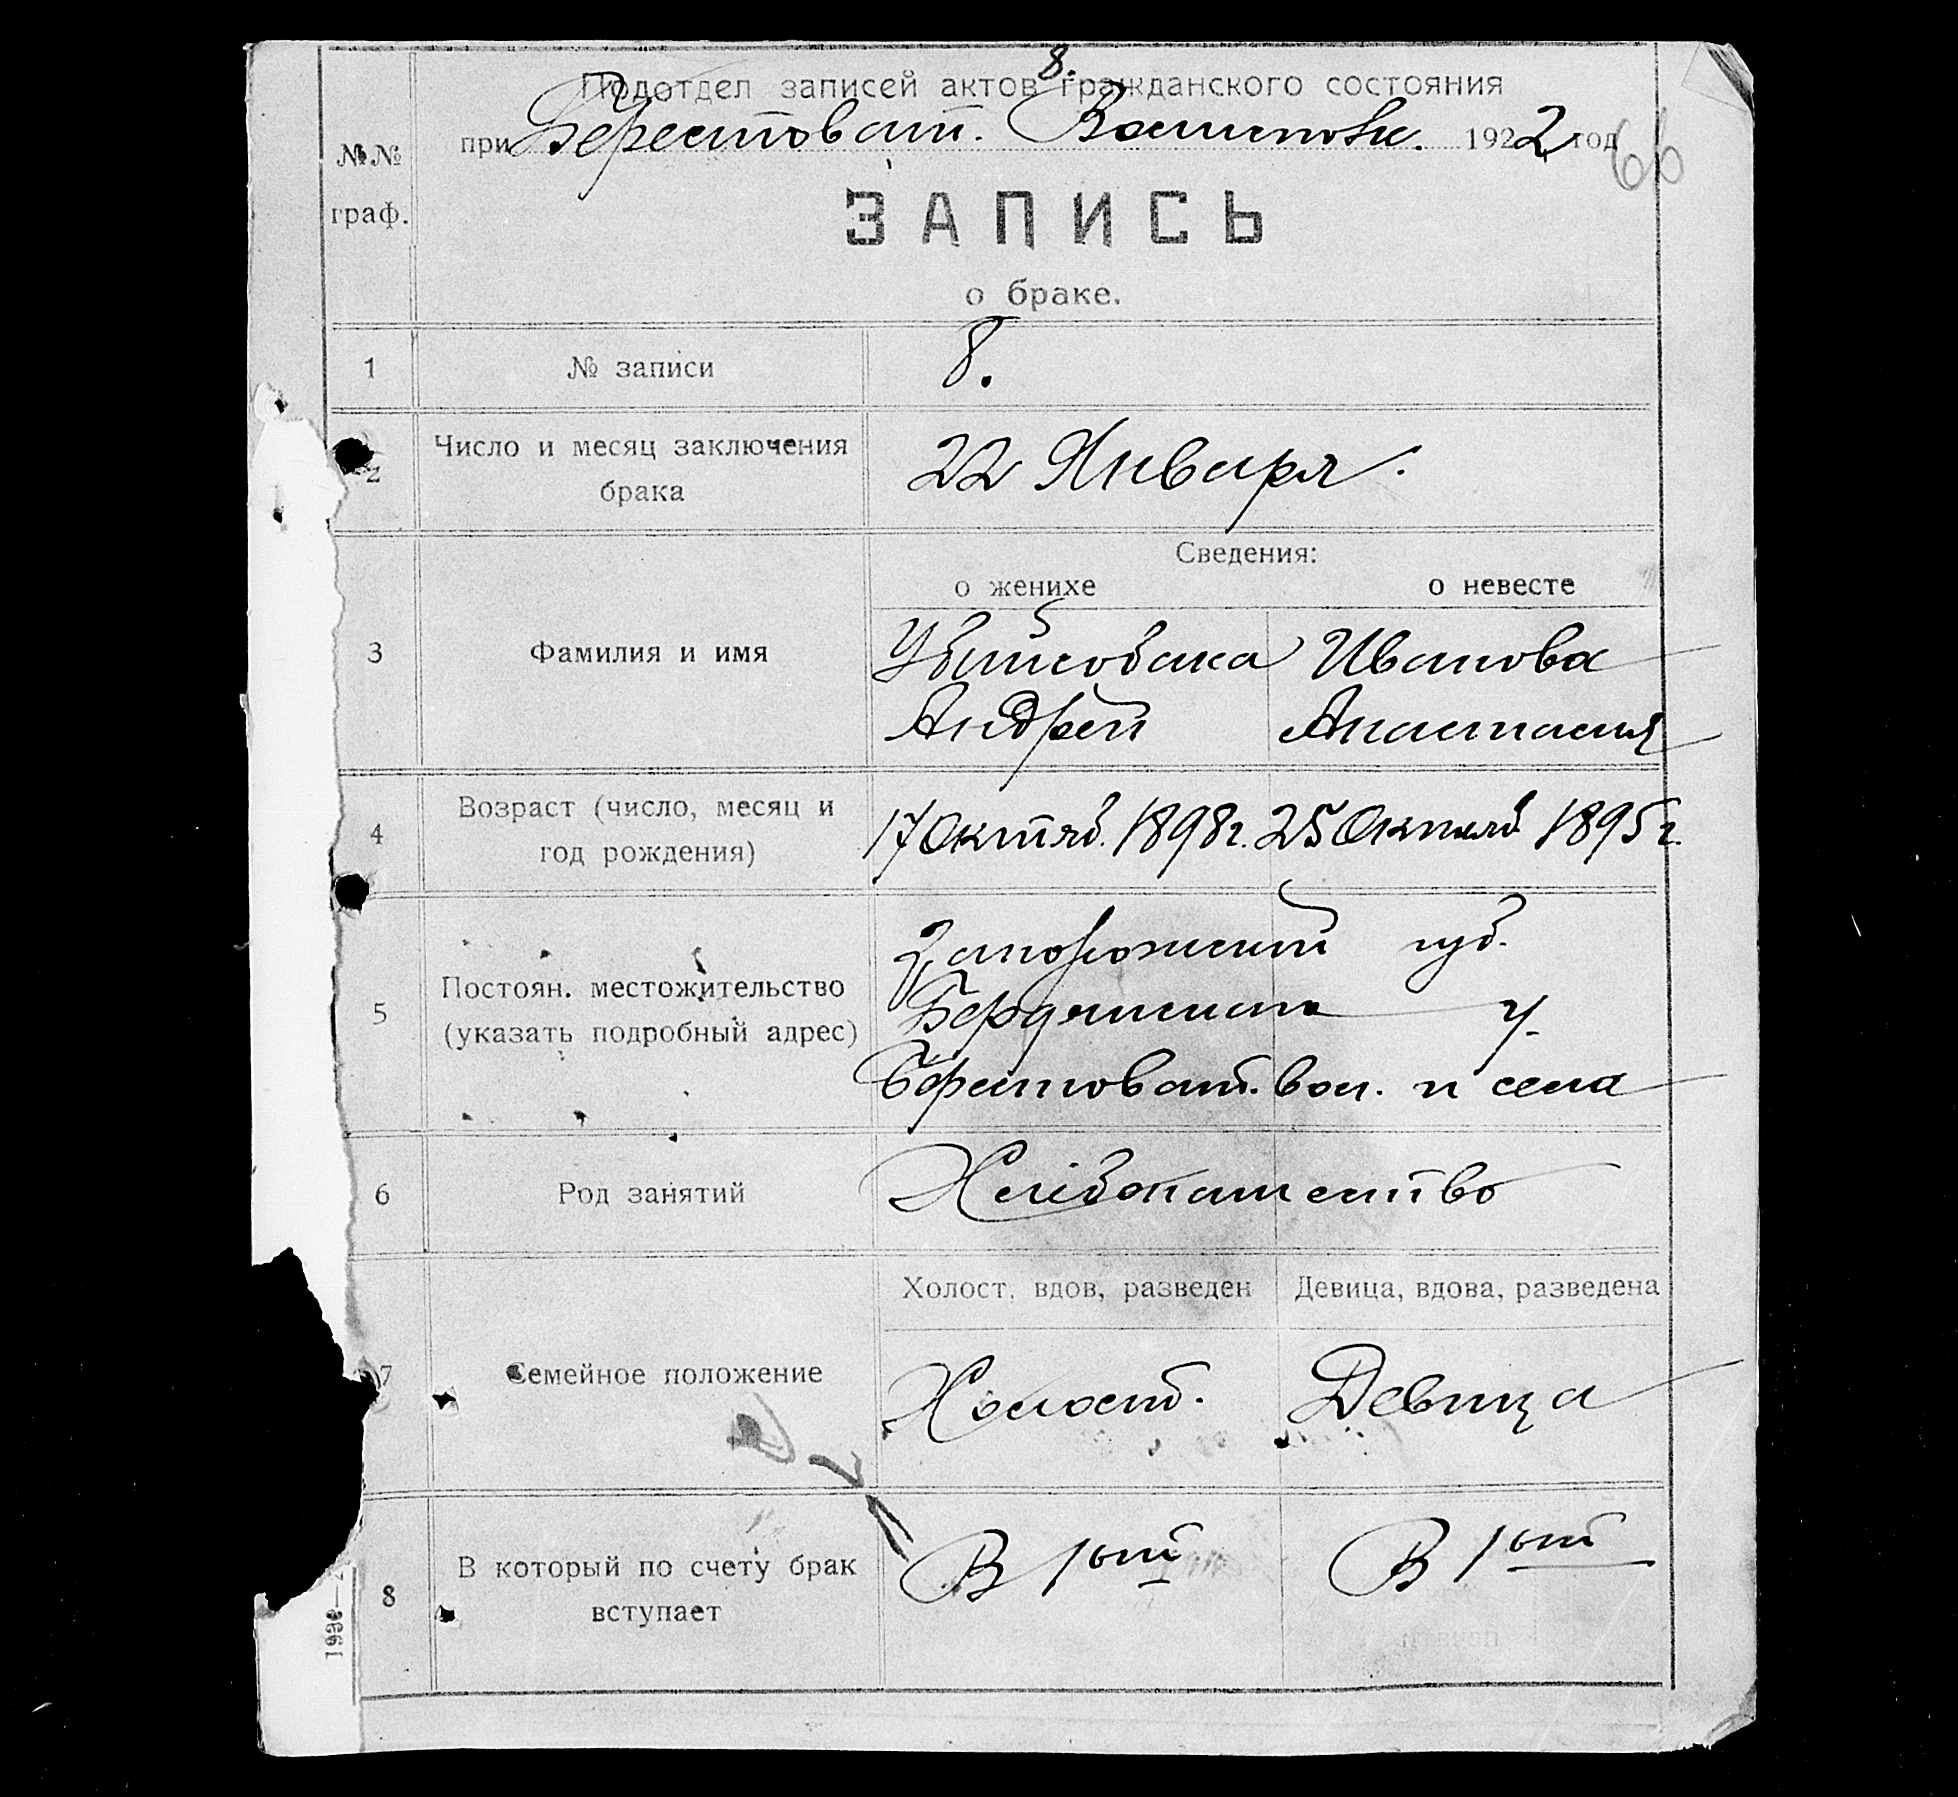 8.
Подотдел записей актов гражданского состояния
при Берестоват. Волисполк. 1922 год
66
№№
граф.
ЗАПИСЬ
о браке.
1 № записи 8.
2 Число и месяц заключения
брака
22 Января.
Сведения:
о женихе о невесте
3 Фамилия и имя
Убийсобака Иванова
Андрей Анастасия
4 Возраст (число, месяц и
год рождения)
17 Октяб. 1898 г. 25 Октяб 1895 г.
5 Постоян. местожительство
(указать подробный адрес)
Запорожский губ.
Бердянского у.
Берестоват. вол. и села
6 Род занятий Хлібопашество
Холост, вдов, разведен Девица, вдова, разведена
7 Семейное положение
Холост. Девица
8 В который по счету брак
вступает
В 1ый В 1ый